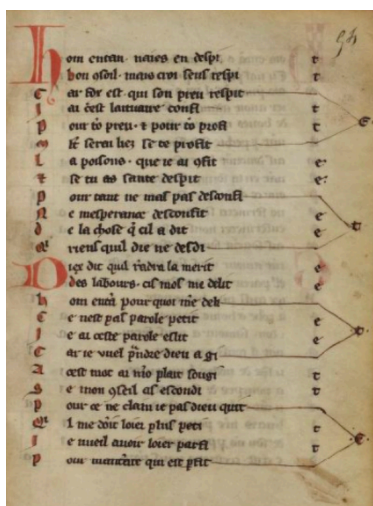 94
hom entan . uaies en despi t
bon 9soil . mais croi seus respi t
Car for est qui son preu respit
I ai cest laituaire confi t
pour to preu . ⁊ pour to profi t
M serai liez se te profit
L a poisons . que ie ai 9fit e
⁊ se tu as sante despit e
pour tant ne mas pas desconfi t
N e mesperance desconfit
d e la chose q̃ cil a dit
riens quil die ne desdi t
Diex dit quil rādra la merit e
des labours . cil mos me delit e
hom entā pour quoi me deli t
C e nest pas parole petit e
I e ai ceste parole eslit e
Car ie vuel pṙndre dieu a gi t
A cest mot ai mō plait fougi t
S e mon 9seil as escondi t
pour ce ne claim ie pas dieu quit e
Il me doit loier plus peti t
I e vueil auoir loier parfi t
pour qui est t